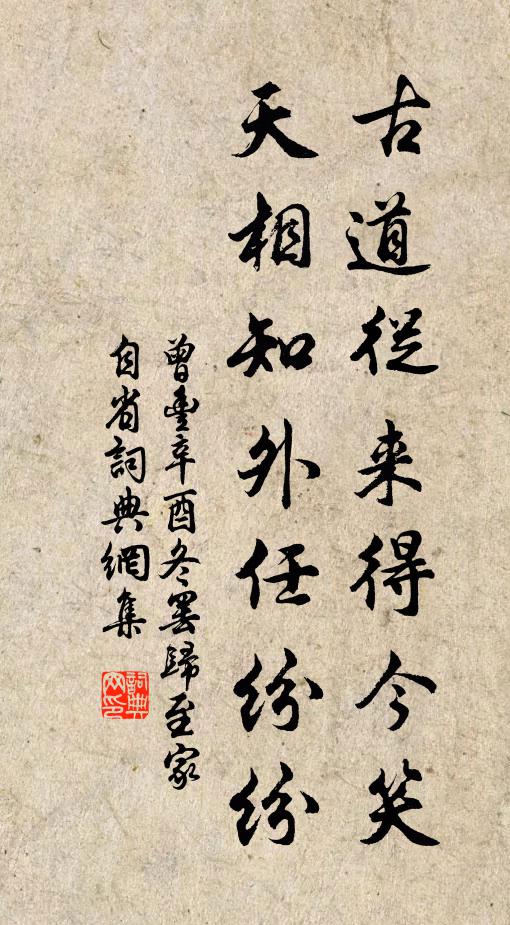 古道從来得今笑
天相知外任紛紛
曾豊辛酉冬罢歸至家
自省詞典網集
詞典网印